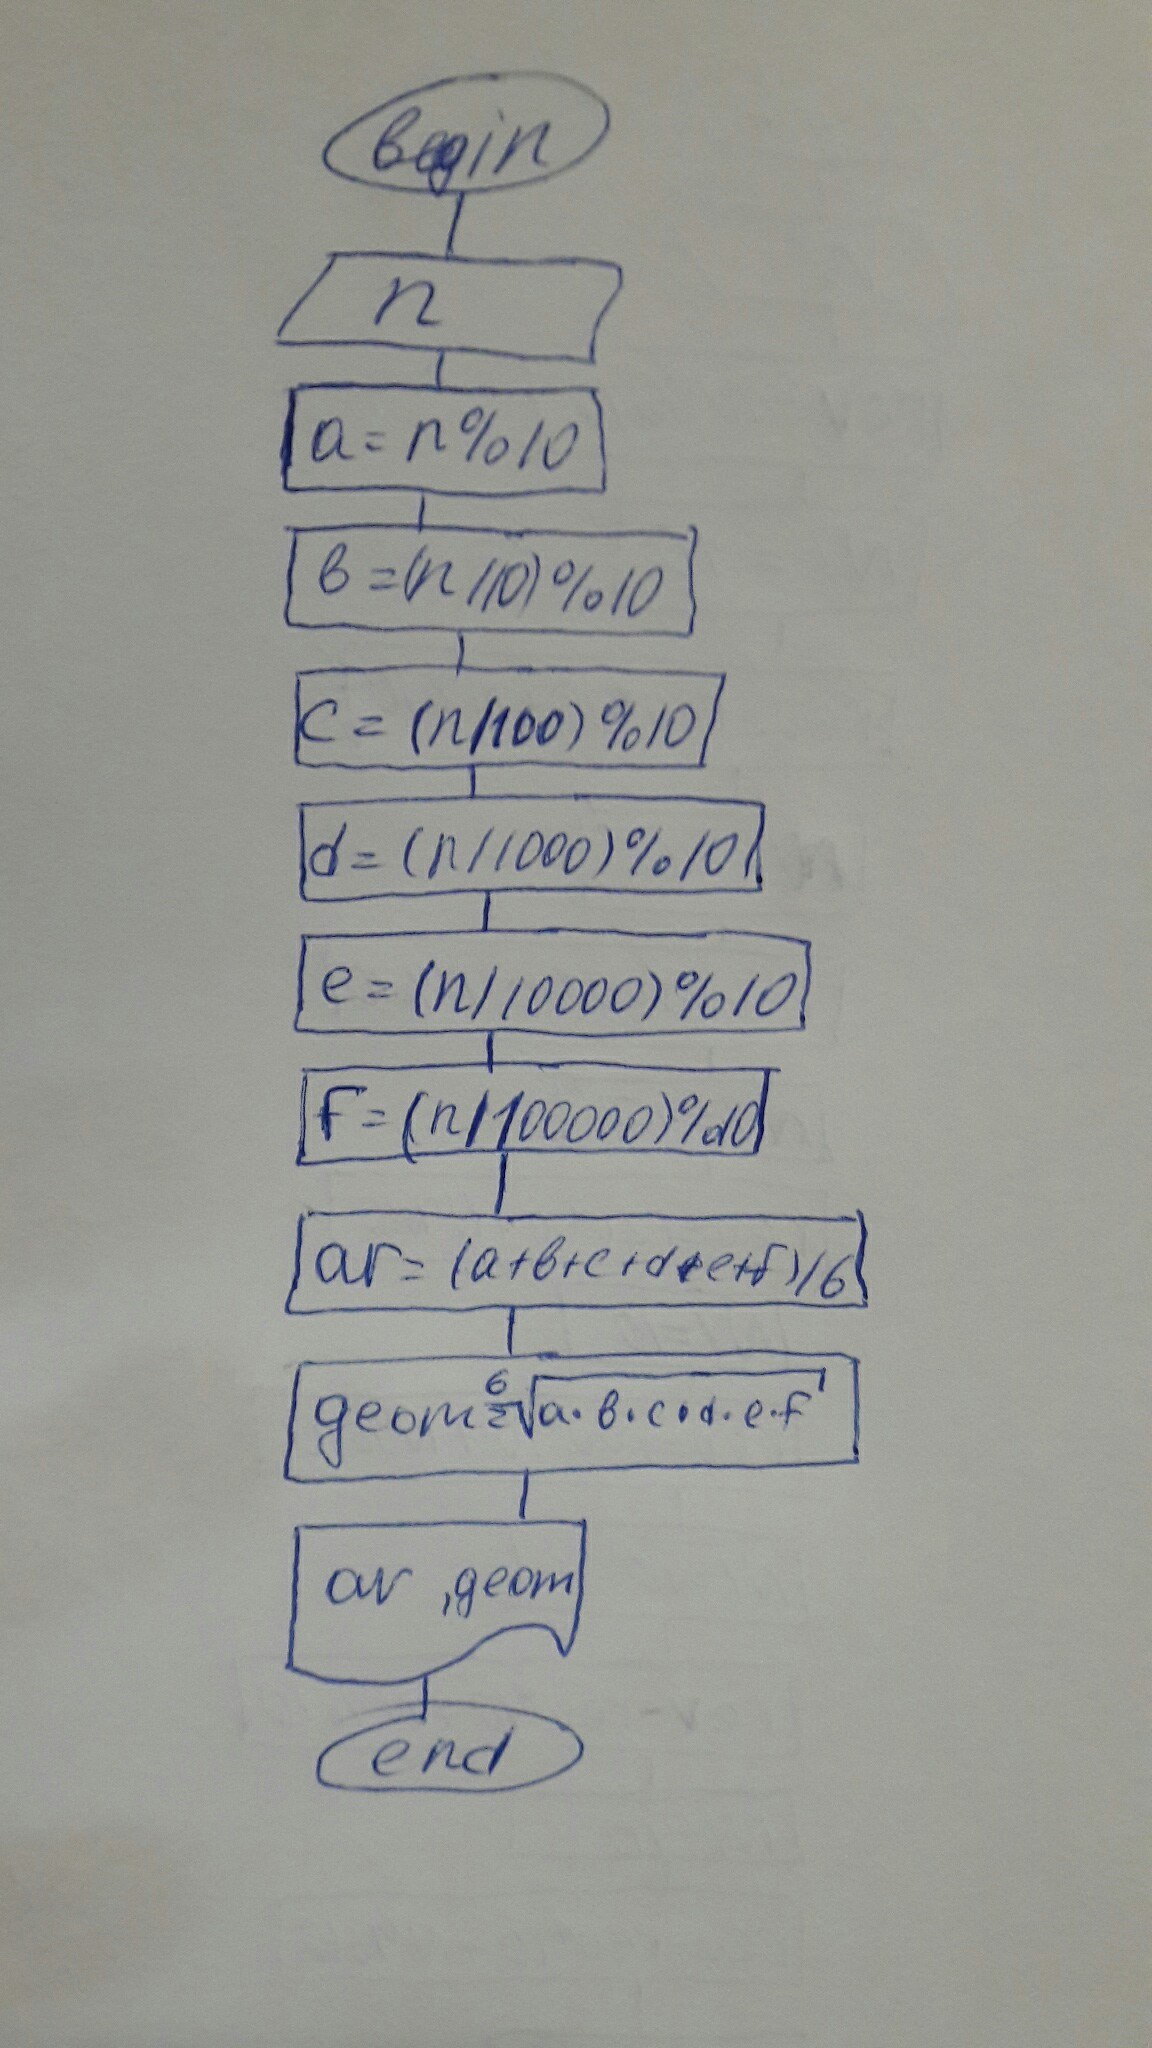 begin
n
a = n%10
b = (n/10)%10
c = (n/100)%10
d = (n/1000)%10
e = (n/10000)%10
f = (n/100000)%10
ar = (a+b+c+d+e+f)/6
geom = ⁶√a·b·c·d·e·f
ar, geom
end